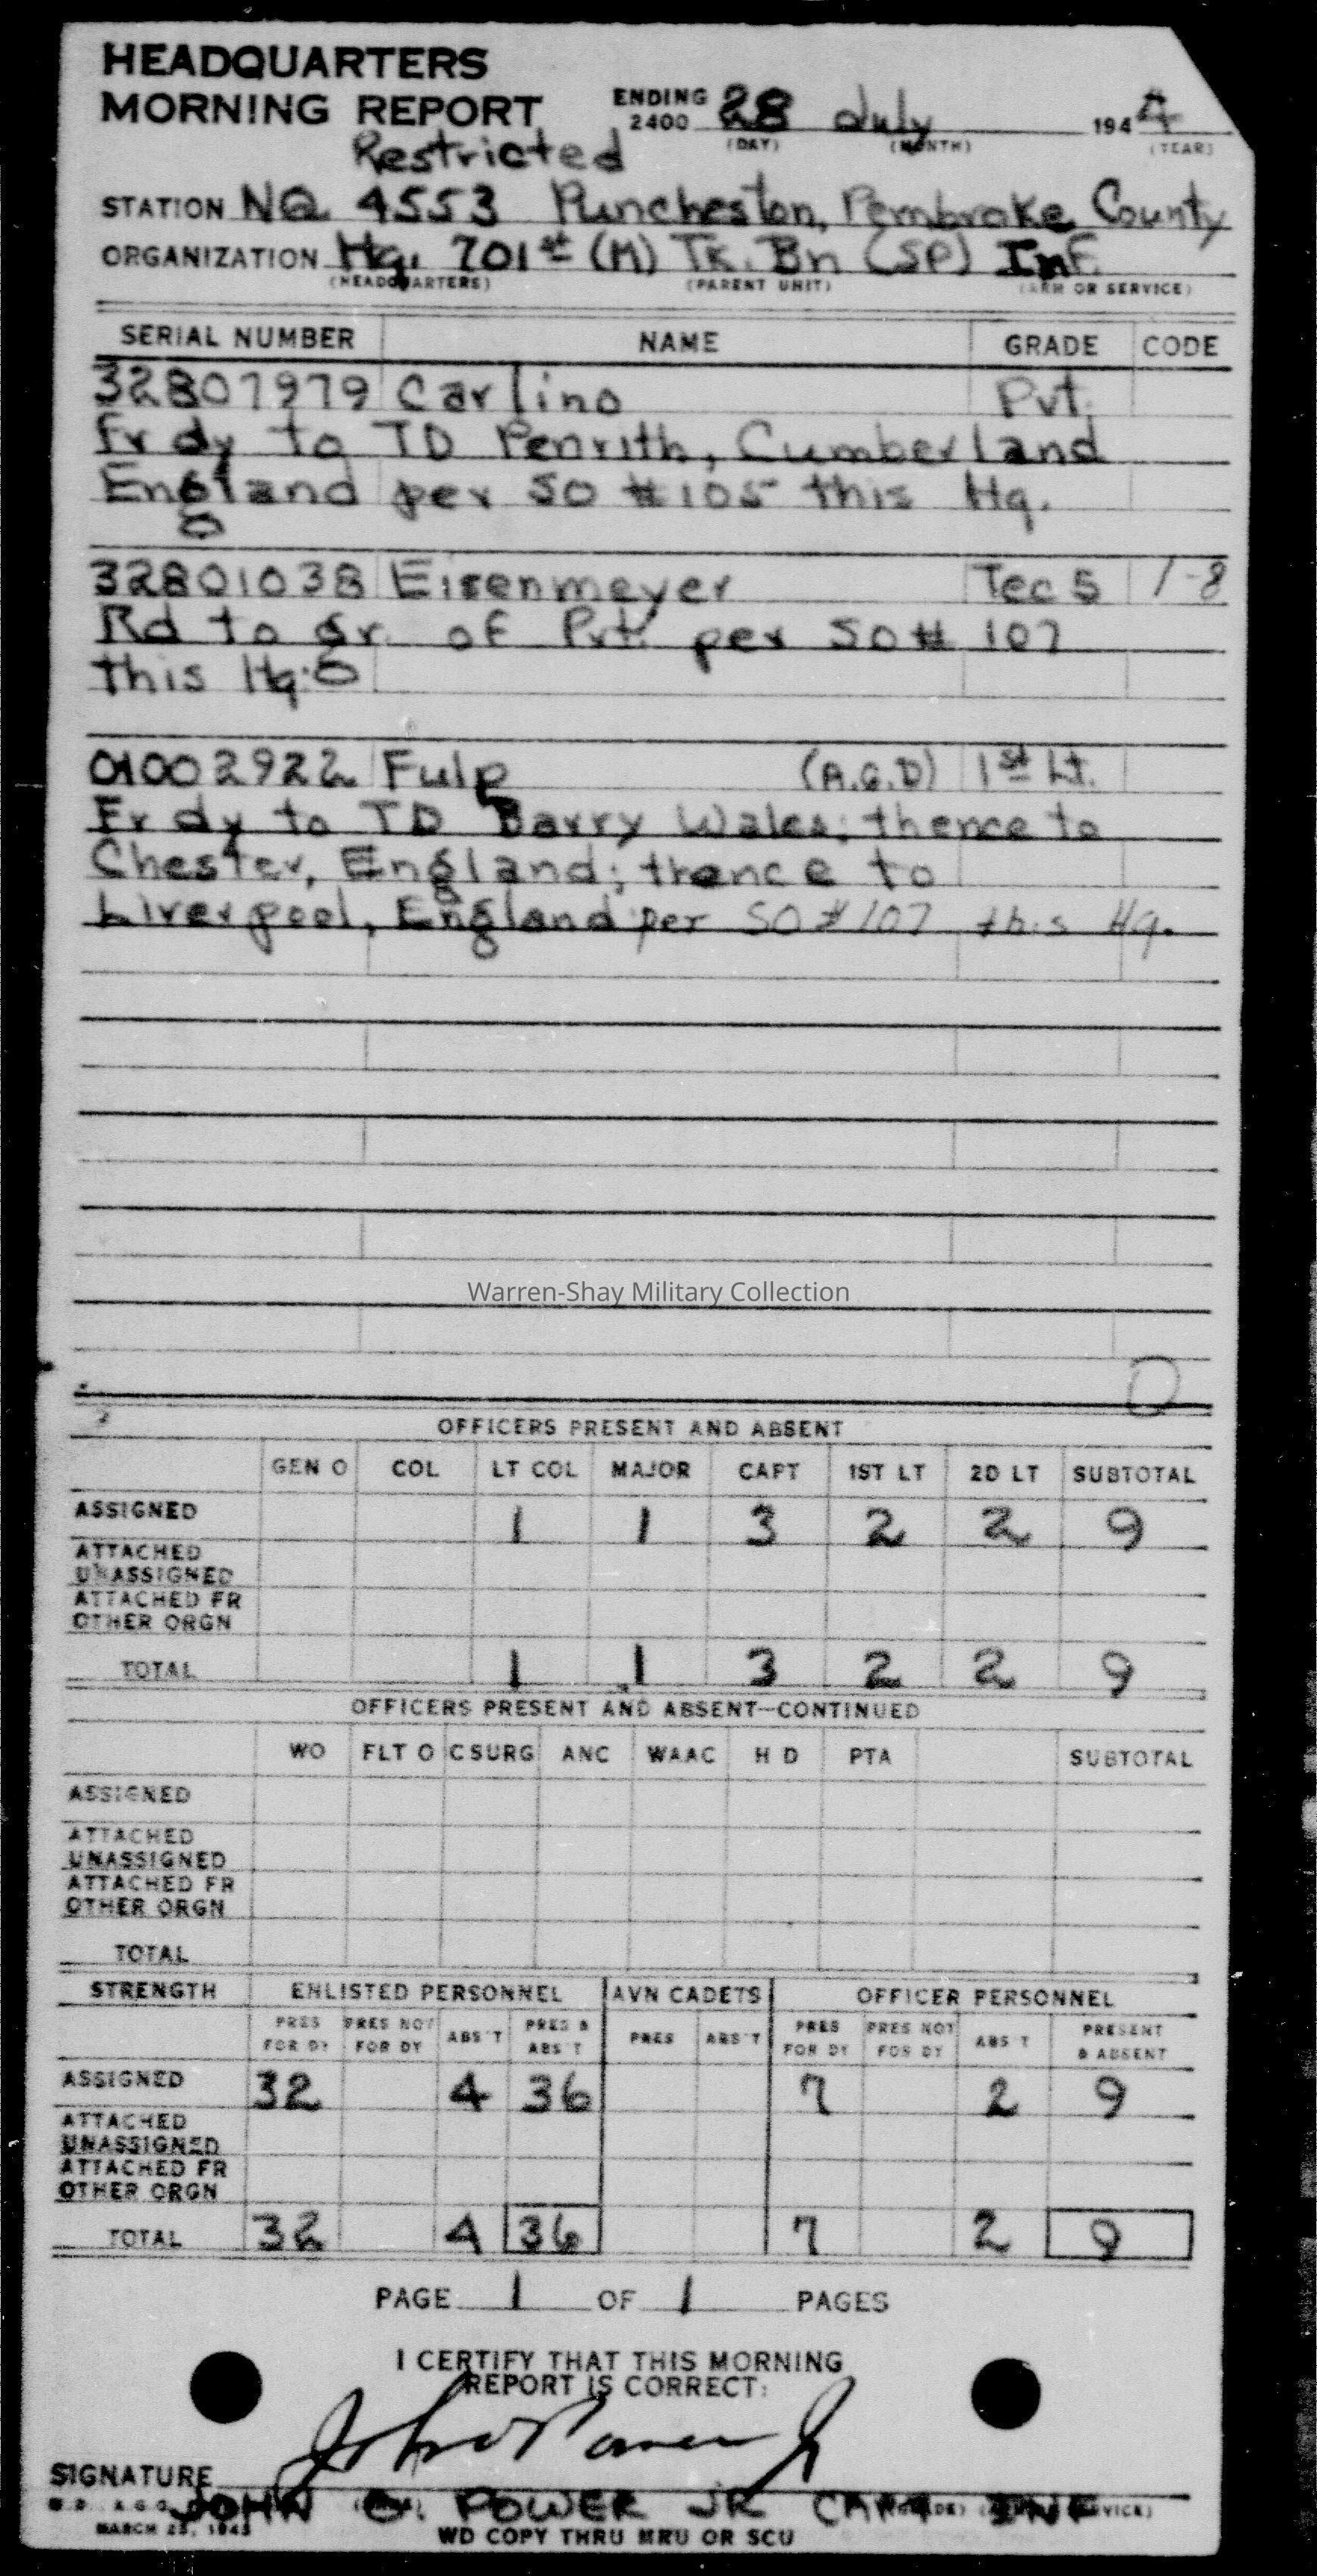 HEADQUARTERS
MORNING REPORT ENDING 2400 28 July 1944
(DAY) (MONTH) (YEAR)
Restricted
STATION NQ 4553 Puncheston, Pembroke County
ORGANIZATION Hq. 701st (M) Tk. Bn (SP) Inf.
(HEADQUARTERS) (PARENT UNIT) (ARM OR SERVICE)
SERIAL NUMBER NAME GRADE CODE
32807979 Carlino Pvt.
Fr dy to TD Penrith, Cumberland
England per SO #105 this Hq.
32801038 Eisenmeyer Tec 5 1-8
Rd to gr. of Pvt. per SO# 107
this Hq.
01002922 Fulp (A.G.D) 1st Lt.
Fr dy to TD Barry Wales; thence to
Chester, England; thence to
Liverpool, England per SO #107 this Hq.
Warren-Shay Military Collection
OFFICERS PRESENT AND ABSENT
GEN O COL LT COL MAJOR CAPT 1ST LT 2D LT SUBTOTAL
ASSIGNED 1 1 3 2 2 9
ATTACHED
UNASSIGNED
ATTACHED FR
OTHER ORGN
TOTAL 1 1 3 2 2 9
OFFICERS PRESENT AND ABSENT—CONTINUED
WO FLT O CSURG ANC WAAC H D PTA SUBTOTAL
ASSIGNED
ATTACHED
UNASSIGNED
ATTACHED FR
OTHER ORGN
TOTAL
STRENGTH ENLISTED PERSONNEL AVN CADETS OFFICER PERSONNEL
PRES FOR DY PRES NOT FOR DY ABS'T PRES & ABS'T PRES ABS'T PRES FOR DY PRES NOT FOR DY ABS'T PRESENT & ABSENT
ASSIGNED 32 4 36 7 2 9
ATTACHED
UNASSIGNED
ATTACHED FR
OTHER ORGN
TOTAL 32 4 36 7 2 9
PAGE 1 OF 1 PAGES
I CERTIFY THAT THIS MORNING
REPORT IS CORRECT:
SIGNATURE John Power Jr
JOHN POWER JR CAPT INF
MARCH 25, 1943
WD COPY THRU MRU OR SCU